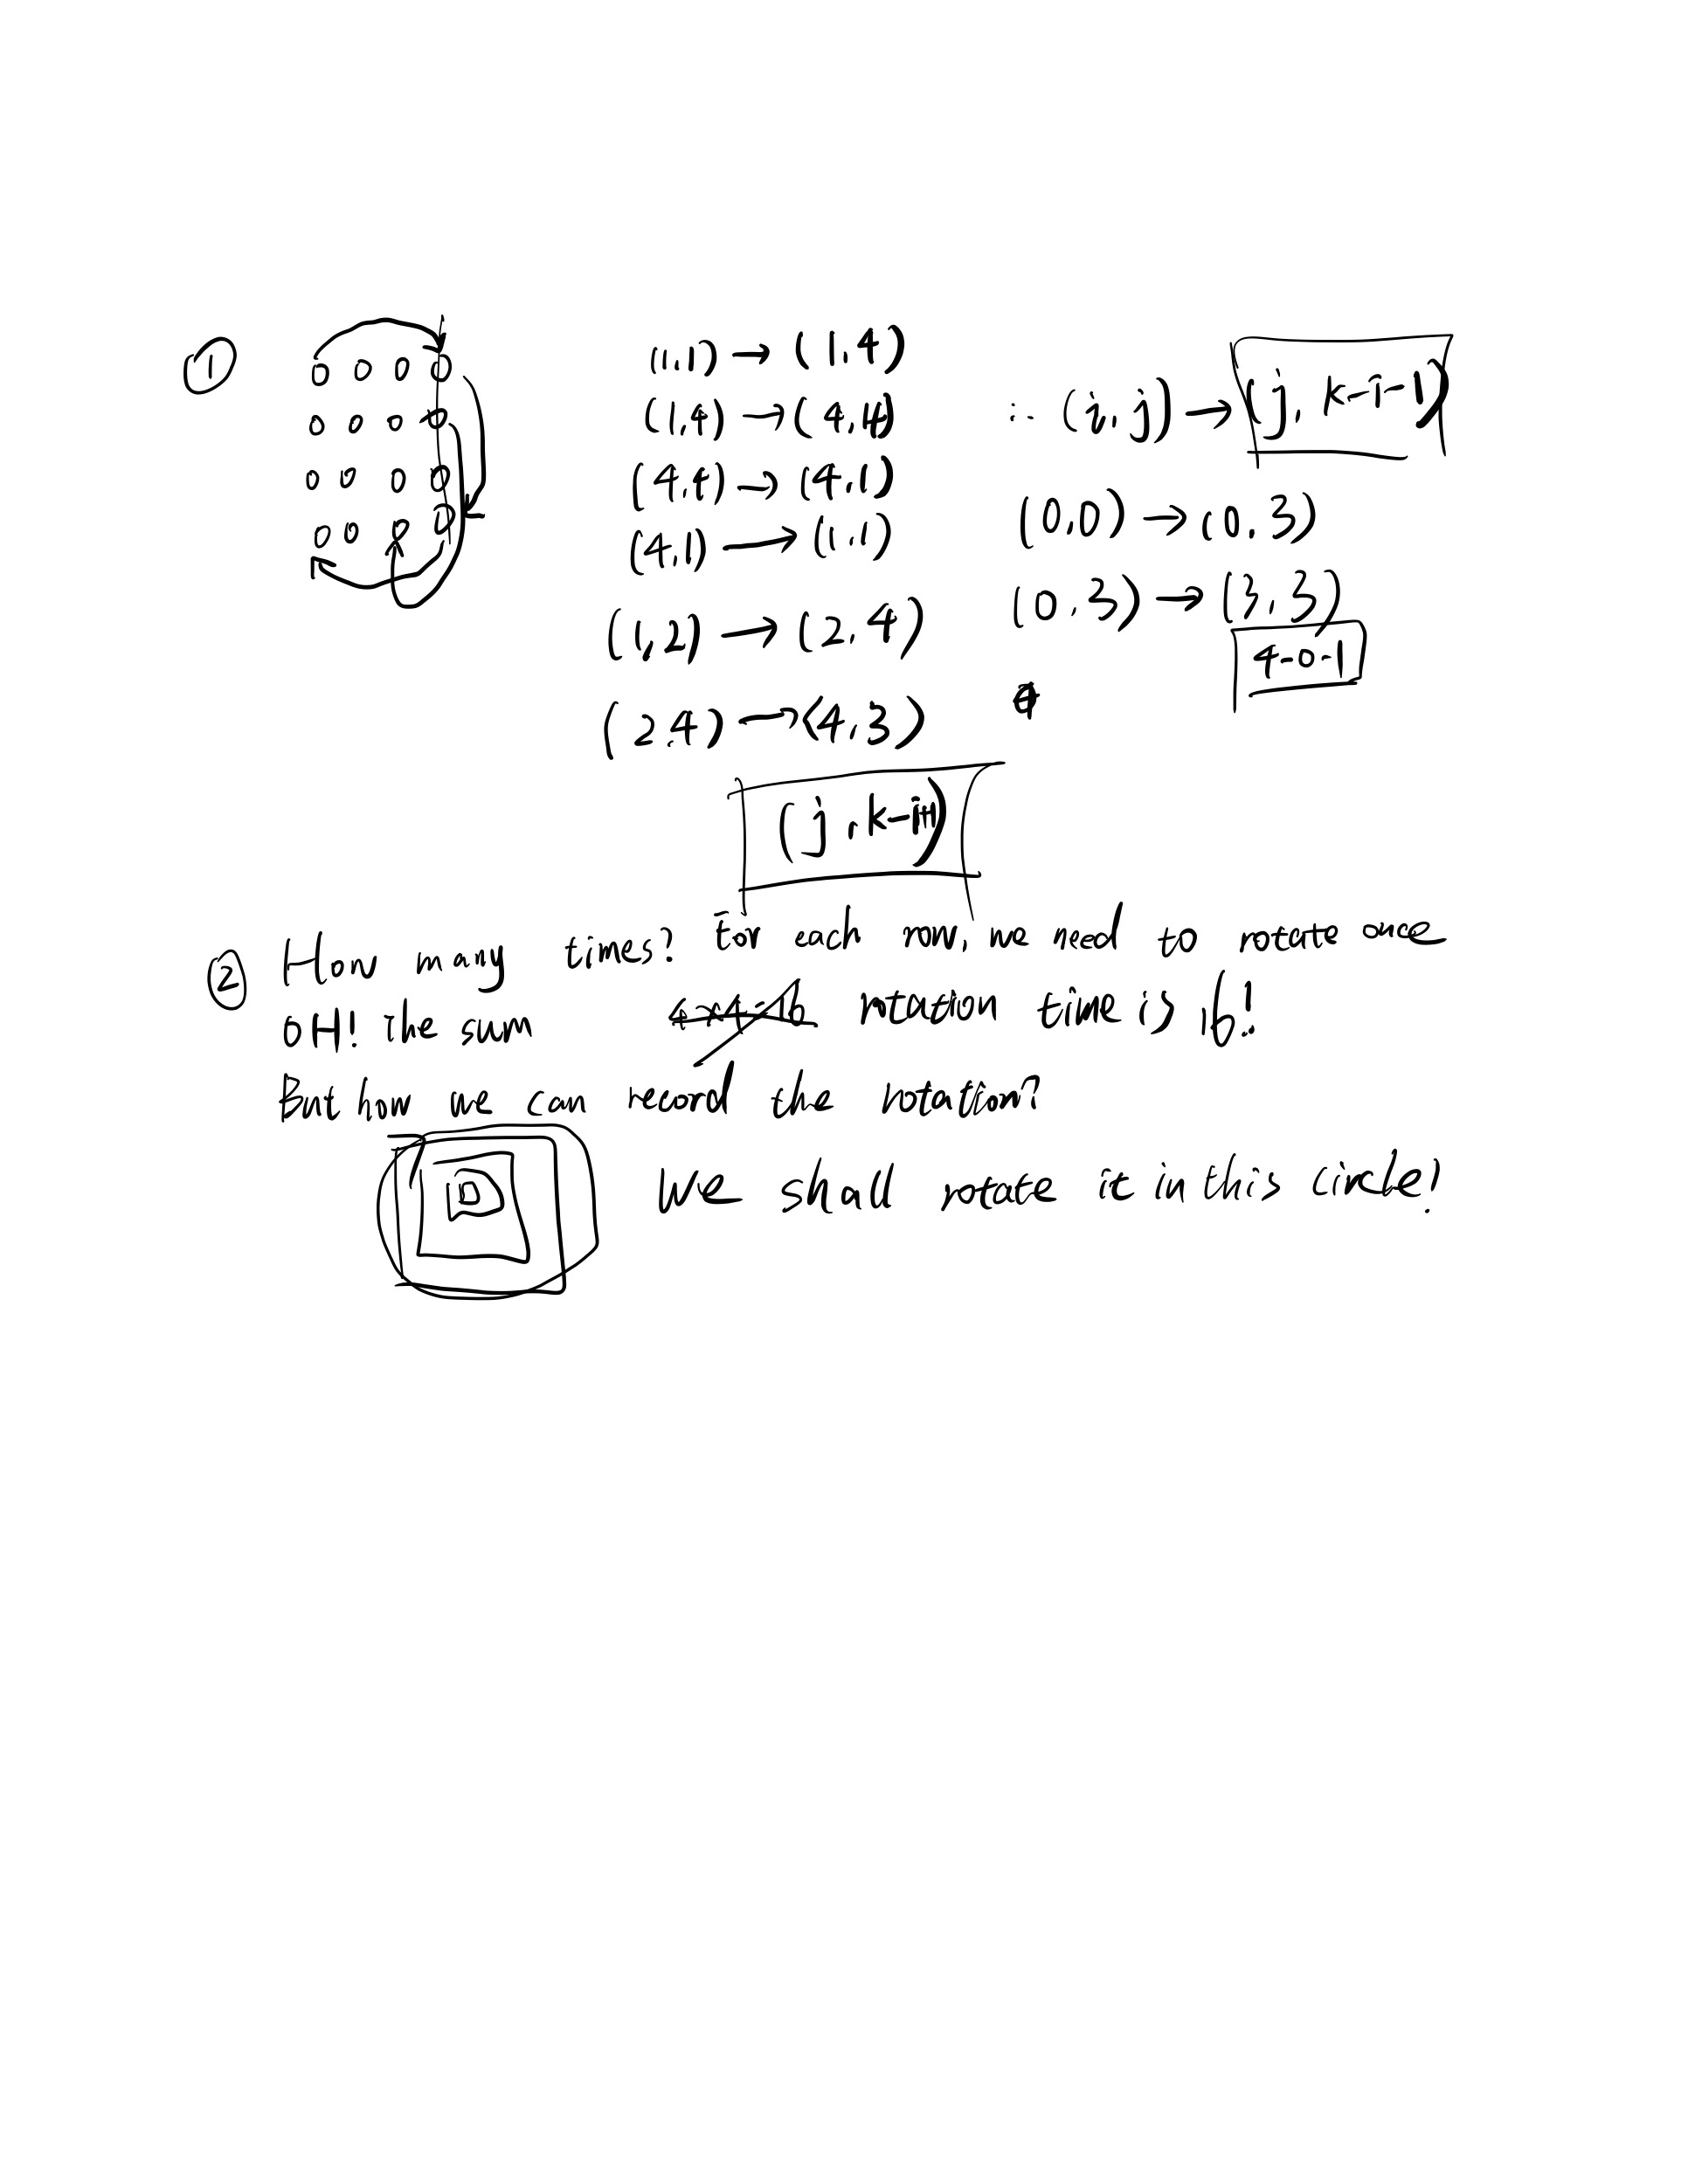 ①
0 0 0 0
0 0 0 0
0 0 0 0
0 0 0 0
(1,1) → (1,4)
(1,4) → (4,4)
(4,4) → (4,1)
(4,1) → (1,1)
(1,2) → (2,4)
(2,4) → (4,3)
(j, k-i+1)
∴ (i, j) → (j, k-i-1)
(0,0) → (0,3)
(0,3) → (3,3)
4-0-1
② How many times? For each row, we need to rotate once
OH! the sum 4×4=16 rotation time is 16!
But how we can record the rotation?
We shall rotate it in this circle!